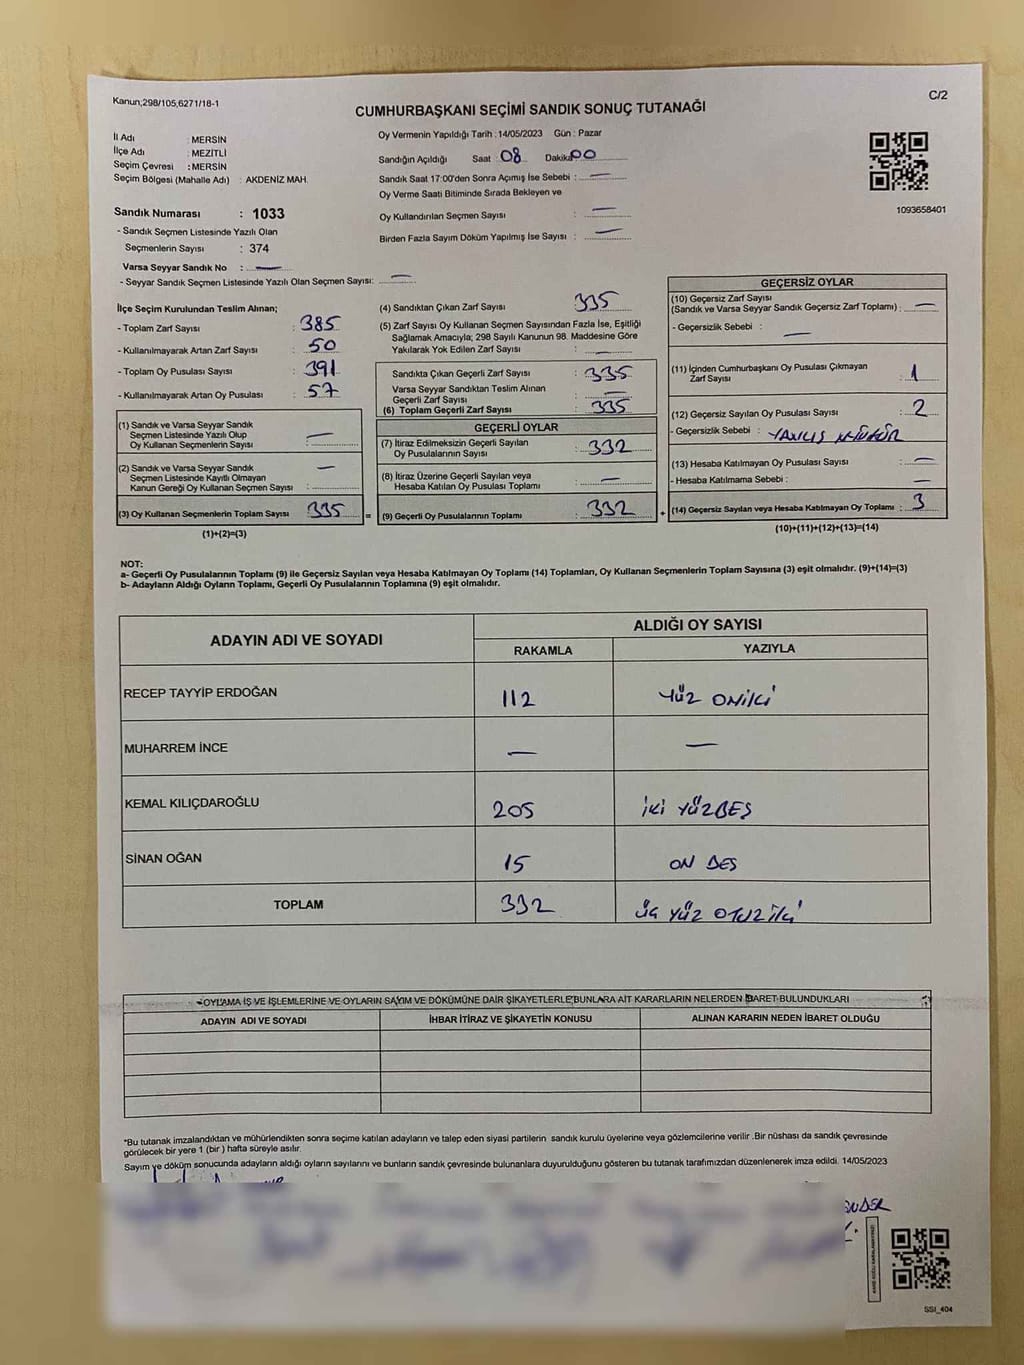 Kanun;298/105,6271/18-1
C/2
CUMHURBAŞKANI SEÇİMİ SANDIK SONUÇ TUTANAĞI
İl Adı : MERSİN
İlçe Adı : MEZİTLİ
Seçim Çevresi : MERSİN
Seçim Bölgesi (Mahalle Adı) : AKDENİZ MAH.
Sandık Numarası : 1033
- Sandık Seçmen Listesinde Yazılı Olan
Seçmenlerin Sayısı : 374
Varsa Seyyar Sandık No : —
- Seyyar Sandık Seçmen Listesinde Yazılı Olan Seçmen Sayısı: —
Oy Vermenin Yapıldığı Tarih : 14/05/2023 Gün : Pazar
Sandığın Açıldığı Saat 08 Dakika 00
Sandık Saat 17:00'den Sonra Açımış İse Sebebi : —
Oy Verme Saati Bitiminde Sırada Bekleyen ve
Oy Kullandırılan Seçmen Sayısı : —
Birden Fazla Sayım Döküm Yapılmış İse Sayısı : —
1093658401
İlçe Seçim Kurulundan Teslim Alınan;
- Toplam Zarf Sayısı : 385
- Kullanılmayarak Artan Zarf Sayısı : 50
- Toplam Oy Pusulası Sayısı : 391
- Kullanılmayarak Artan Oy Pusulası : 57
(1) Sandık ve Varsa Seyyar Sandık
Seçmen Listesinde Yazılı Olup
Oy Kullanan Seçmenlerin Sayısı : —
(2) Sandık ve Varsa Seyyar Sandık
Seçmen Listesinde Kayıtlı Olmayan
Kanun Gereği Oy Kullanan Seçmen Sayısı : —
(3) Oy Kullanan Seçmenlerin Toplam Sayısı : 335
(1)+(2)=(3)
(4) Sandıktan Çıkan Zarf Sayısı : 335
(5) Zarf Sayısı Oy Kullanan Seçmen Sayısından Fazla İse, Eşitliği
Sağlamak Amacıyla; 298 Sayılı Kanunun 98. Maddesine Göre
Yakılarak Yok Edilen Zarf Sayısı : —
Sandıkta Çıkan Geçerli Zarf Sayısı : 335
Varsa Seyyar Sandıktan Teslim Alınan
Geçerli Zarf Sayısı : —
(6) Toplam Geçerli Zarf Sayısı : 335
GEÇERLİ OYLAR
(7) İtiraz Edilmeksizin Geçerli Sayılan
Oy Pusulalarının Sayısı : 332
(8) İtiraz Üzerine Geçerli Sayılan veya
Hesaba Katılan Oy Pusulası Toplamı : —
(9) Geçerli Oy Pusulalarının Toplamı : 332
GEÇERSİZ OYLAR
(10) Geçersiz Zarf Sayısı
(Sandık ve Varsa Seyyar Sandık Geçersiz Zarf Toplamı) : —
- Geçersizlik Sebebi : —
(11) İçinden Cumhurbaşkanı Oy Pusulası Çıkmayan
Zarf Sayısı : 1
(12) Geçersiz Sayılan Oy Pusulası Sayısı : 2
- Geçersizlik Sebebi : YANLIŞ MÜHÜR
(13) Hesaba Katılmayan Oy Pusulası Sayısı : —
- Hesaba Katılmama Sebebi : —
(14) Geçersiz Sayılan veya Hesaba Katılmayan Oy Toplamı : 3
(10)+(11)+(12)+(13)=(14)
NOT:
a- Geçerli Oy Pusulalarının Toplamı (9) ile Geçersiz Sayılan veya Hesaba Katılmayan Oy Toplamı (14) Toplamları, Oy Kullanan Seçmenlerin Toplam Sayısına (3) eşit olmalıdır. (9)+(14)=(3)
b- Adayların Aldığı Oyların Toplamı, Geçerli Oy Pusulalarının Toplamına (9) eşit olmalıdır.
ADAYIN ADI VE SOYADI
ALDIĞI OY SAYISI
RAKAMLA YAZIYLA
RECEP TAYYİP ERDOĞAN 112 YÜZ ONİKİ
MUHARREM İNCE — —
KEMAL KILIÇDAROĞLU 205 İKİ YÜZBEŞ
SİNAN OĞAN 15 ON BEŞ
TOPLAM 332 ÜÇ YÜZ OTUZ İKİ
OYLAMA İŞ VE İŞLEMLERİNE VE OYLARIN SAYIM VE DÖKÜMÜNE DAİR ŞİKAYETLERLE BUNLARA AİT KARARLARIN NELERDEN İBARET BULUNDUKLARI
ADAYIN ADI VE SOYADI İHBAR İTİRAZ VE ŞİKAYETİN KONUSU ALINAN KARARIN NEDEN İBARET OLDUĞU
*Bu tutanak imzalandıktan ve mühürlendikten sonra seçime katılan adayların ve talep eden siyasi partilerin sandık kurulu üyelerine veya gözlemcilerine verilir .Bir nüshası da sandık çevresinde
görülecek bir yere 1 (bir ) hafta süreyle asılır.
Sayım ve döküm sonucunda adayların aldığı oyların sayılarını ve bunların sandık çevresinde bulunanlara duyurulduğunu gösteren bu tutanak tarafımızdan düzenlenerek imza edildi. 14/05/2023
SSI_404